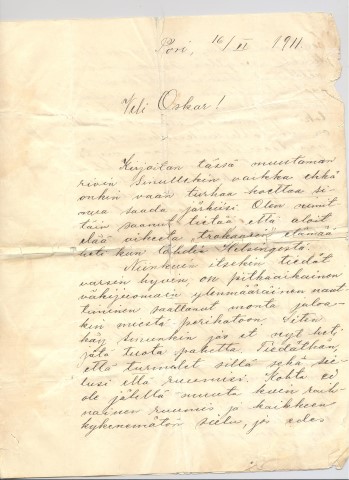 Pori, 16/II 1911.
Veli Oskar!
Kirjoitan tässä muutaman
rivin Sinullekin vaikka ehkä
onkin vaan turhaa koettaa si-
nua saada järkiisi Olen nimit
täin saanut tietää että aloit
elää oikeeta, elämää
heti kun lähdit Helsingistä.
Niinkuin itsekin tiedät
varsin hyvin, on pitkäaikainen
väkijuomain ylenmääräinen naut
timinen saattanut monta jaloa-
kin miestä perikatoon. Siten
käy Sinunkin jos et nyt heti
jätä tuota pahetta. Tiedäthän,
että turmelet sillä sekä sie-
lusi että ruumiisi. Kohta ei
ole jälellä muuta kuin raih-
nainen ruumis ja kaikkeen
kykenemätön sielu, jos edes